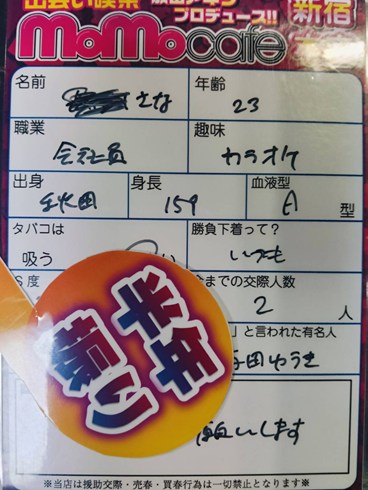 出会い喫茶
プロデュース!!
新宿
MoMocafe
名前 さな
年齢 23
職業 会社員
趣味 カラオケ
出身 秋田
身長 159
血液型 A 型
タバコは
吸う い
勝負下着って?
いつも
S度
今までの交際人数
2 人
」と言われた有名人
田ゆうき
半年
振り
願いします
※当店は援助交際・売春・買春行為は一切禁止となります※